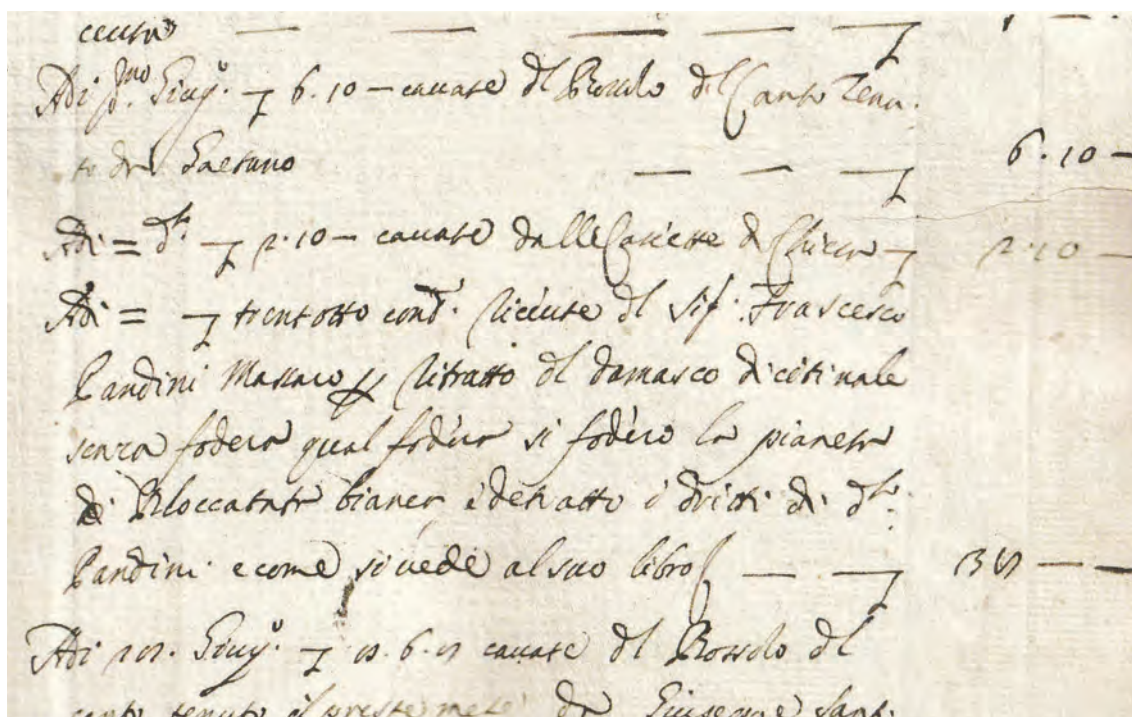 Adi p.mo Giug.o L 6.10 — cavate dl Bossolo del Canto Tenu-
to da Gaetano — — — L 6.10 —
Adi = d.o L 2.10 — cavate dalle Casicette di Chiesa L 2.10 —
Adi = L trentotto cond. riceute dl Sig. Francesco
Pandini Massaro p ritratto dl damasco
senza fodera qual fodera si foderò la pianeta
di Broccatato bianca e detratto i dritti di d.o
Pandini e come si vede al suo libro — — L 38 — —
Giug.o L 6. cavate dl Bossolo dl
canto tenuto da Giuseppe Sant.